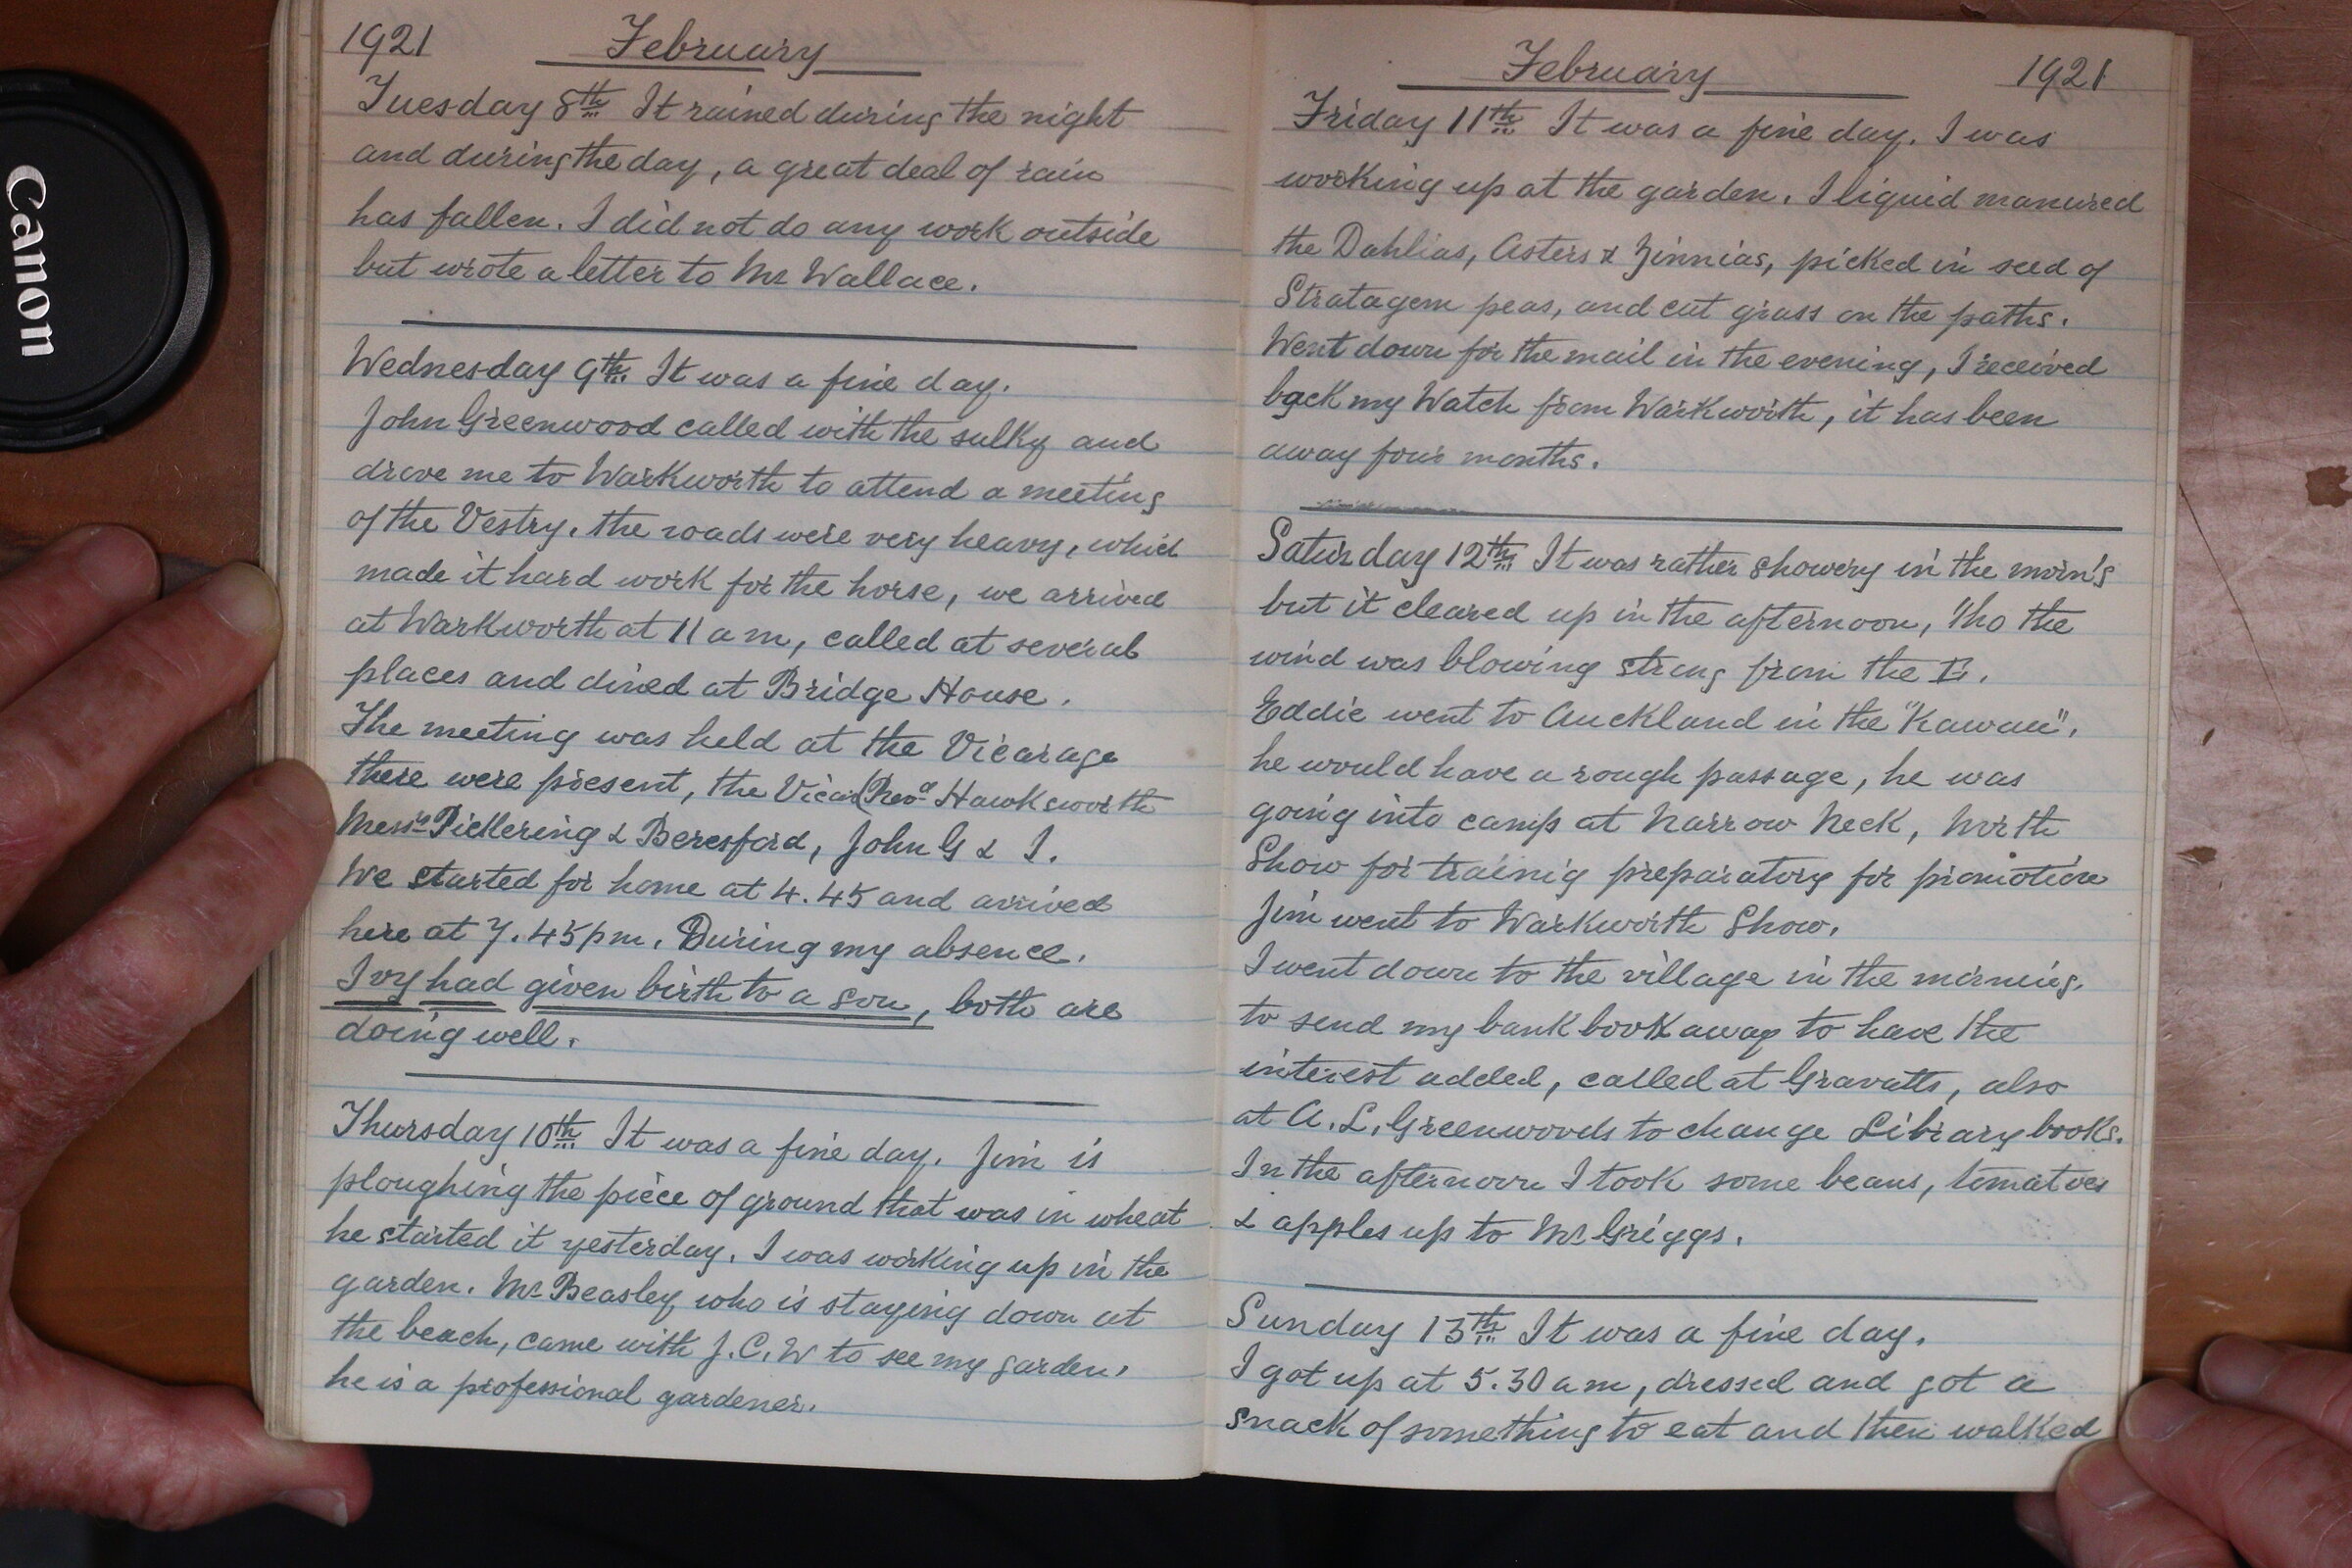 Canon
1921 February
Tuesday 8th It rained during the night
and during the day, a great deal of rain
has fallen. I did not do any work outside
but wrote a letter to Mr Wallace.
Wednesday 9th. It was a fine day.
John Greenwood called with the sulky and
drove me to Warkworth to attend a meeting
of the Vestry. the roads were very heavy, which
made it hard work for the horse, we arrived
at Warkworth at 11 a m, called at several
places and dined at Bridge House.
The meeting was held at the Vicarage
there were present, the Vicar (Revd Hawksworth
Messrs Pickering & Beresford, John G & I.
We started for home at 4.45 and arrived
here at 7.45 pm. During my absence.
Ivy had given birth to a son, both are
doing well.
Thursday 10th It was a fine day. Jim is
ploughing the piece of ground that was in wheat
he started it yesterday. I was working up in the
garden. Mr Beasley who is staying down at
the beach, came with J.C.W to see my garden,
he is a professional gardener.
February 1921
Friday 11th It was a fine day. I was
working up at the garden. I liquid manured
the Dahlias, Asters & Zinnias, picked in seed of
Stratagem peas, and cut grass on the paths.
Went down for the mail in the evening, I received
back my Watch from Warkworth, it has been
away four months.
Saturday 12th It was rather showery in the morn'g
but it cleared up in the afternoon, 'tho the
wind was blowing strong from the E.
Eddie went to Auckland in the "Kawau",
he would have a rough passage, he was
going into camp at Narrow Neck, North
Show for trainig preparatory for promotion
Jim went to Warkworth Show.
I went down to the village in the morning.
to send my bank book away to have the
interest added, called at Gravatts, also
at A. L. Greenwoods to change Library books.
In the afternoon I took some beans, tomatoes
& apples up to Mr Griggs.
Sunday 13th It was a fine day.
I got up at 5.30 a m, dressed and got a
snack of something to eat and then walked